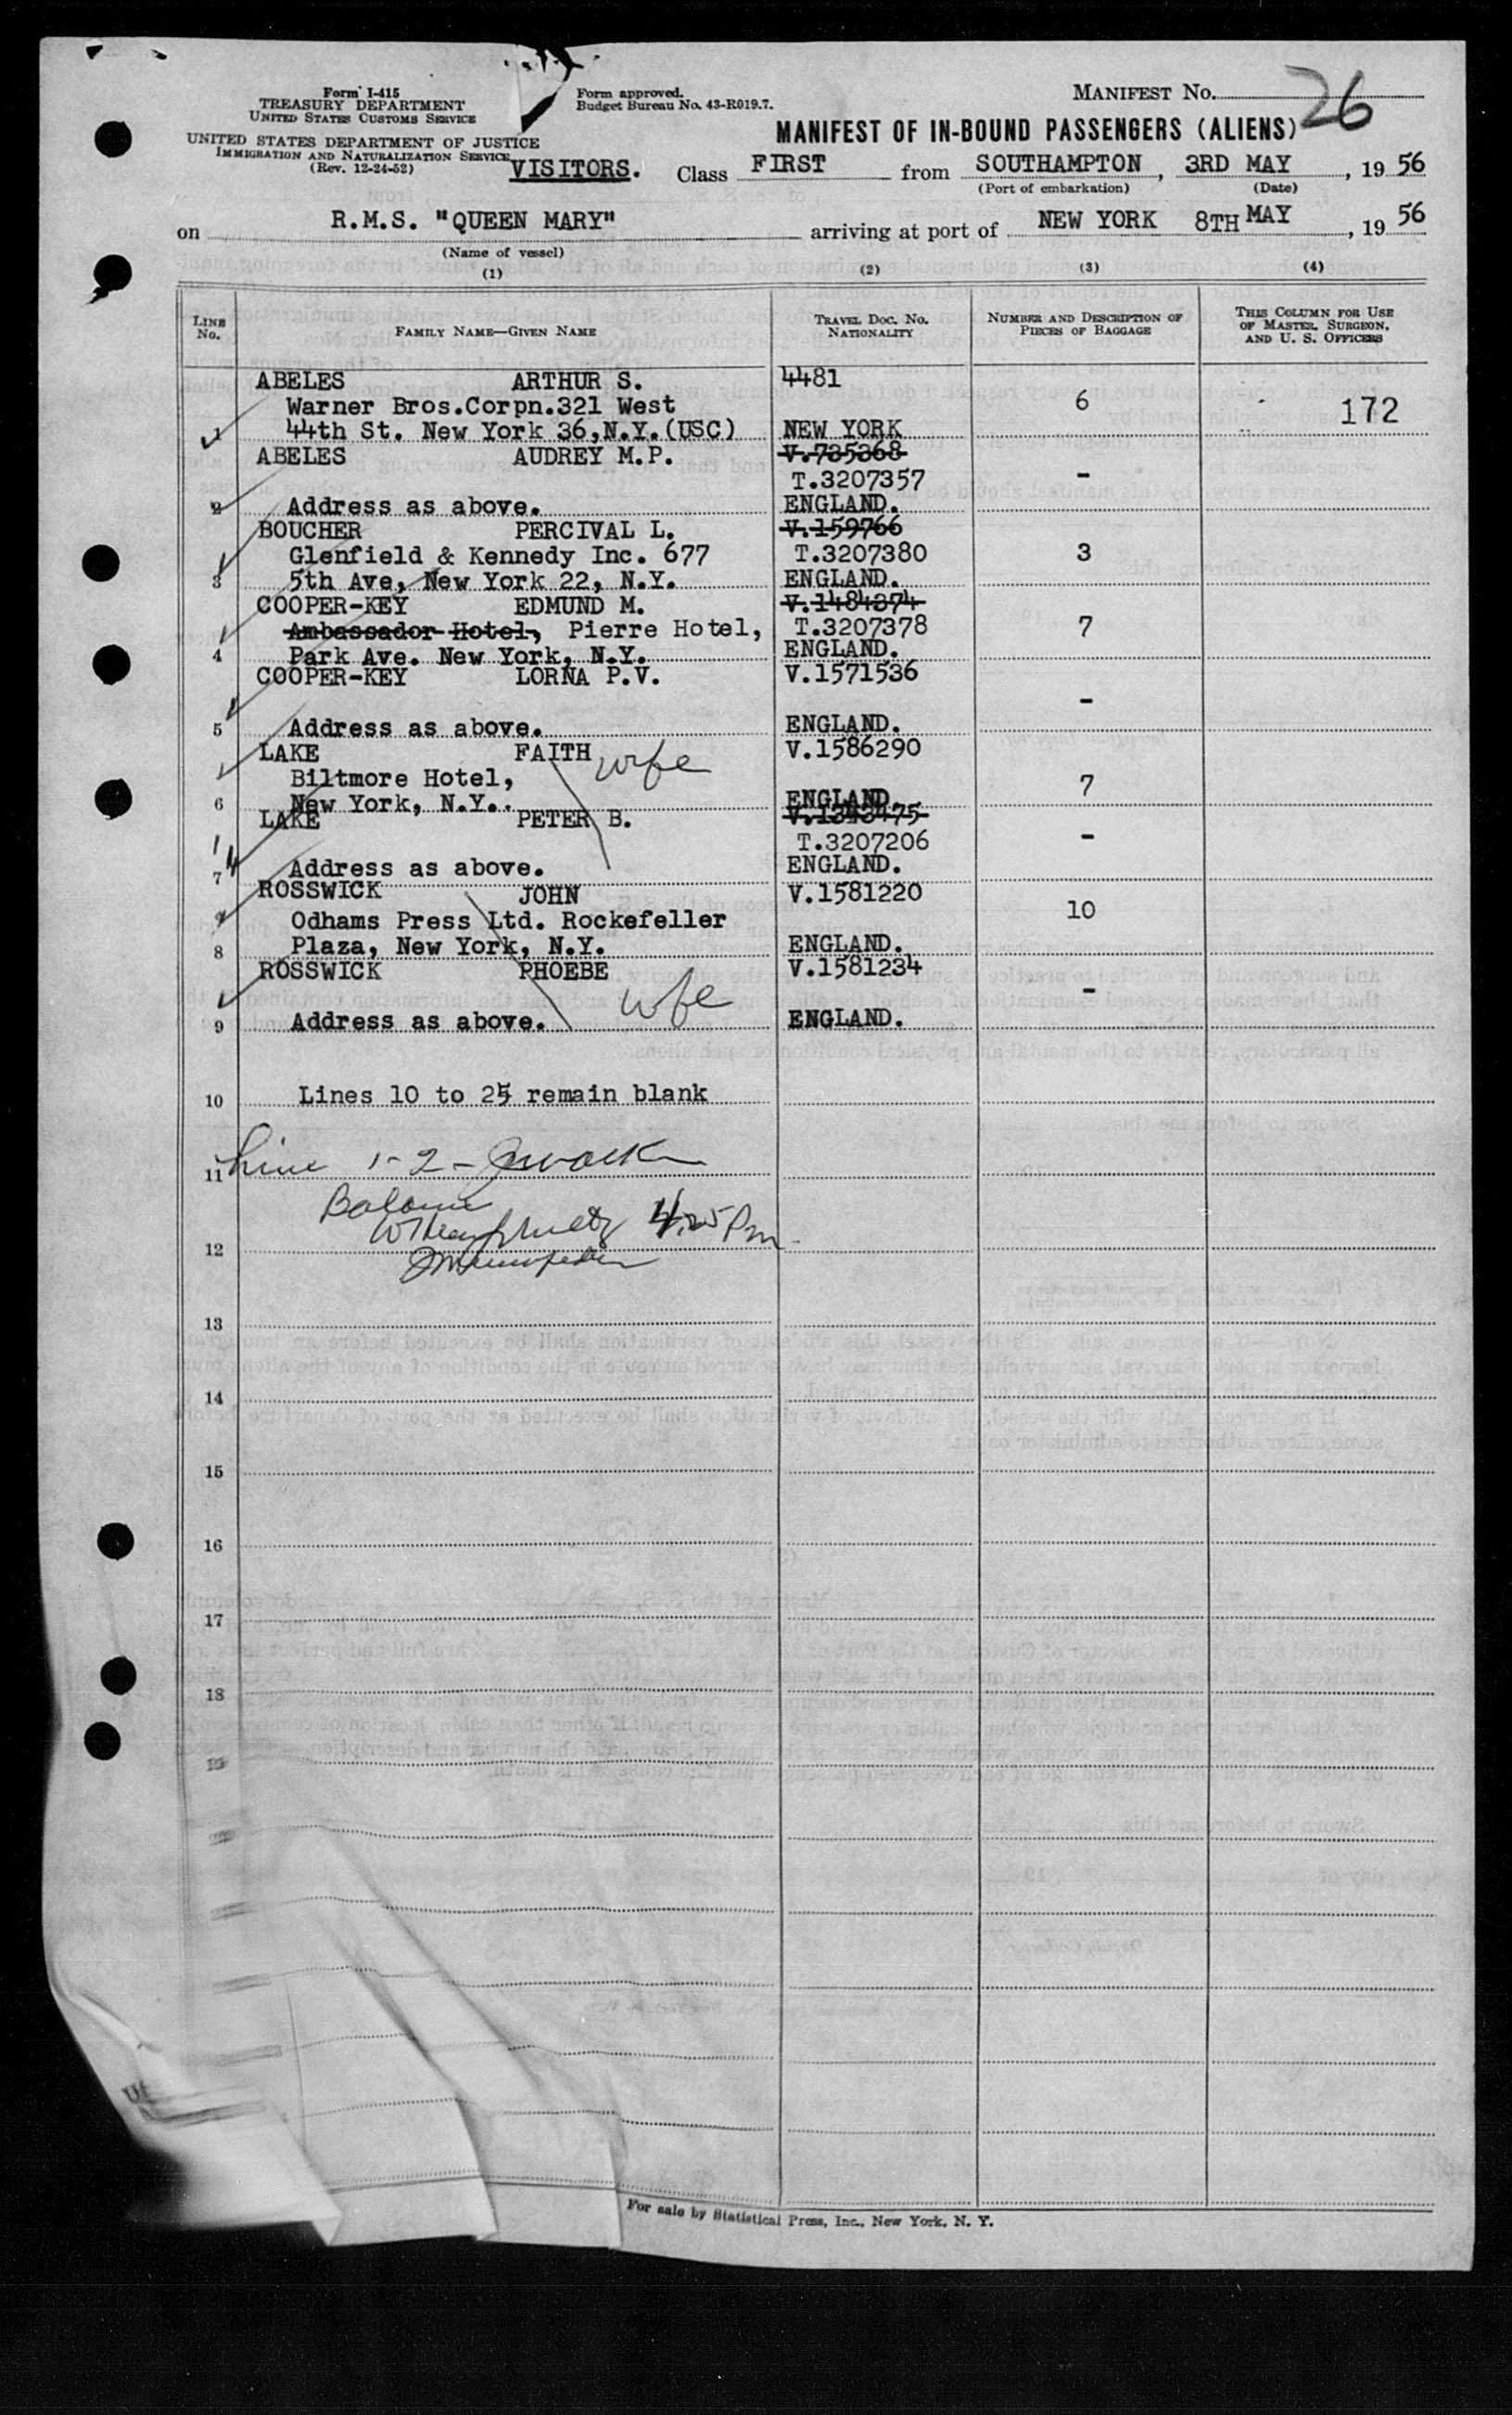 Form I-415
TREASURY DEPARTMENT
UNITED STATES CUSTOMS SERVICE
UNITED STATES DEPARTMENT OF JUSTICE
IMMIGRATION AND NATURALIZATION SERVICE
(Rev. 12-24-52)
Form approved.
Budget Bureau No. 43-R019.7.
MANIFEST No. 26
MANIFEST OF IN-BOUND PASSENGERS (ALIENS)
VISITORS. Class FIRST from SOUTHAMPTON, 3RD MAY, 19 56
(Port of embarkation) (Date)
on R.M.S. "QUEEN MARY" arriving at port of NEW YORK 8TH MAY, 19 56
(Name of vessel)
(1) (2) (3) (4)
LINE No. FAMILY NAME—GIVEN NAME TRAVEL DOC. NO. NATIONALITY NUMBER AND DESCRIPTION OF PIECES OF BAGGAGE THIS COLUMN FOR USE OF MASTER, SURGEON, AND U. S. OFFICERS
ABELES ARTHUR S. 4481
Warner Bros.Corpn.321 West 6 172
1 44th St. New York 36,N.Y.(USC) NEW YORK
ABELES AUDREY M.P. V.735368
T.3207357 -
2 Address as above. ENGLAND.
BOUCHER PERCIVAL L. V.159766
Glenfield & Kennedy Inc. 677 T.3207380 3
3 5th Ave, New York 22, N.Y. ENGLAND.
COOPER-KEY EDMUND M. V.1484374
Ambassador Hotel, Pierre Hotel, T.3207378 7
4 Park Ave. New York, N.Y. ENGLAND.
COOPER-KEY LORNA P.V. V.1571536
-
5 Address as above. ENGLAND.
LAKE FAITH wife V.1586290
Biltmore Hotel, 7
6 New York, N.Y.. ENGLAND.
LAKE PETER B. V.1343475
T.3207206 -
7 Address as above. ENGLAND.
ROSSWICK JOHN V.1581220
Odhams Press Ltd. Rockefeller 10
8 Plaza, New York, N.Y. ENGLAND.
ROSSWICK PHOEBE V.1581234
wife -
9 Address as above. ENGLAND.
10 Lines 10 to 25 remain blank
11 Line 1-2-
Balance
4.25 Pm
12
13
14
15
16
17
18
19
For sale by Statistical Press, Inc., New York, N. Y.